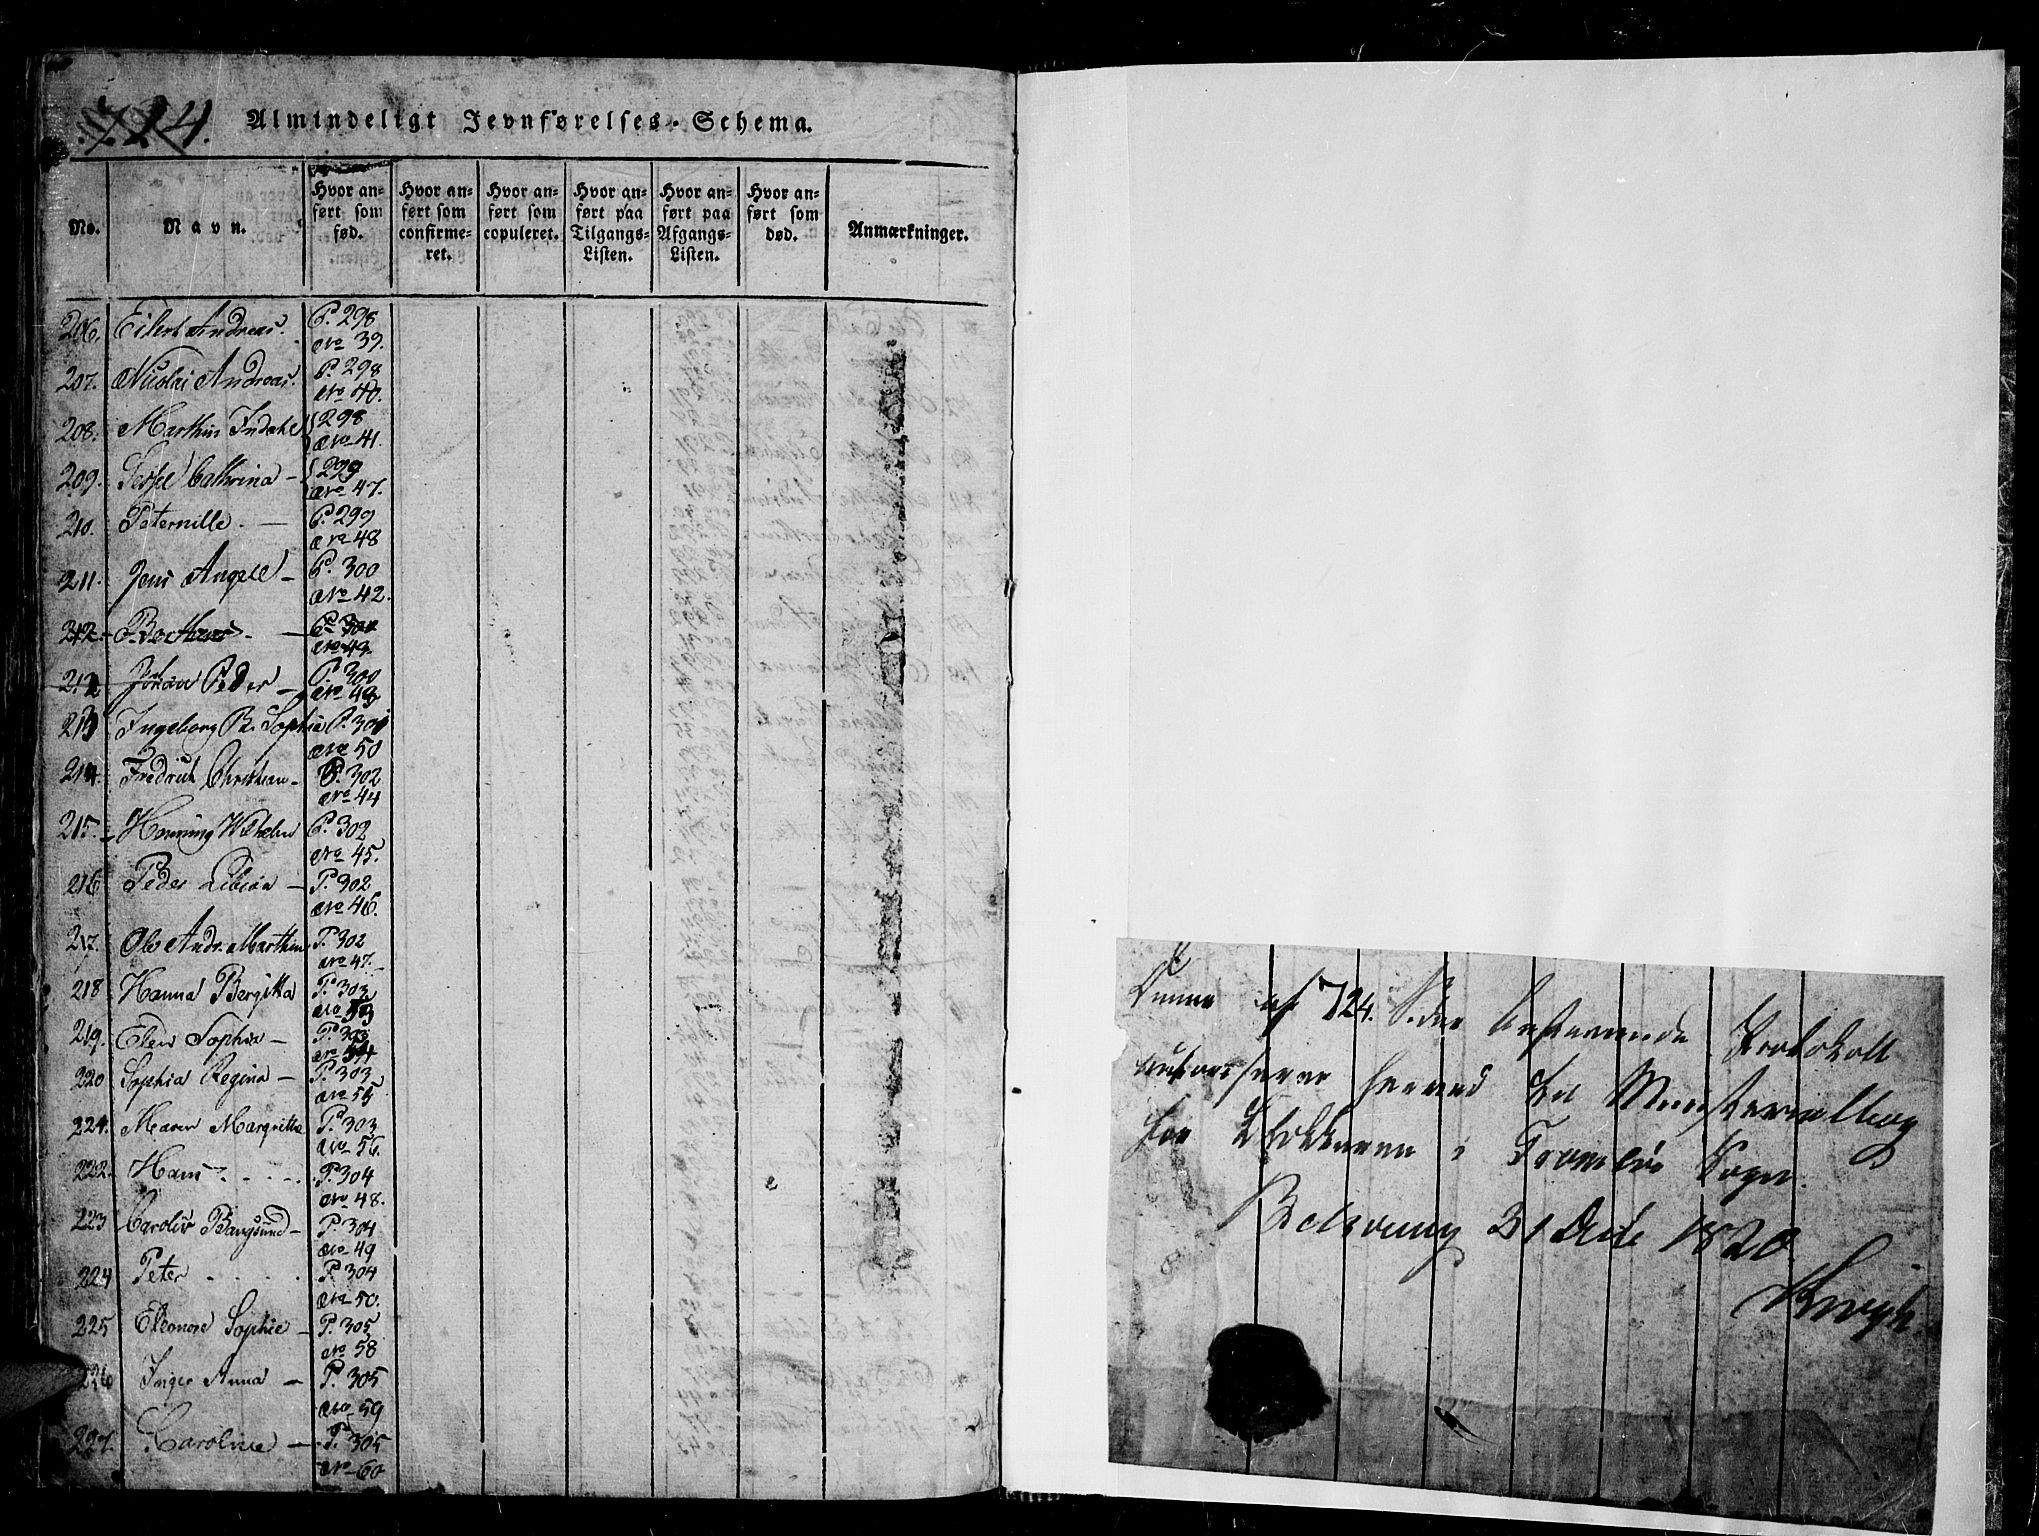 724.
Almindeligt Jevnførelses-Schema.
No.
Navn.
Hvor an-
ført som
fød.
Hvor an-
ført som
confirme-
ret.
Hvor an-
ført som
copuleret.
Hvor an-
ført paa
Tilgangs-
Listen.
Hvor an-
ført paa
Afgangs-
Listen.
Hvor an-
ført som
død.
Anmærkninger.
206. Eilert Andreas. P. 298
No 39.
207. Nicolai Andreas. P. 298
No 40.
208. Marthin Indahl 298
No 41.
209. Cathrina - 299
No 47.
210. Peternille. - P. 299
No 48
211. Jens Angell - P. 300
No 42.
212. - P. 301
No 49.
212 Johan Peder - P. 300
No 43
213 Ingeborg B. Sophia P. 301
No 50
214. Fredrich Christian - P. 302
No 44
215. - Henning Wilhelm P. 302
No 45.
216 Peder - P. 302
No 46.
217. Ole Andr. Marthin P. 302
No 47.
218 Hanna Bergitta P. 303
No 53
219. Elen Sophia - P. 303
No 54
220 Sophia Regina - P. 303
No 55
221. Maren Margritha P. 303
No 56.
222. Hans . . . . P. 304
No 48.
223 Carolus Bangsund - P. 304
No 49
224 Peter . . . . P. 304
No 50.
225 Eleonore Sophie - P. 305
No 58
226 Inger Anna - P. 305
No 59
227. Caroline - P. 305
No 60
Denne af 724. Sider bestaaende Protokoll
autoriseres herved til Ministerialbog
for Klokkeren i Tromsöe Sogn.
31 1820
Krogh.